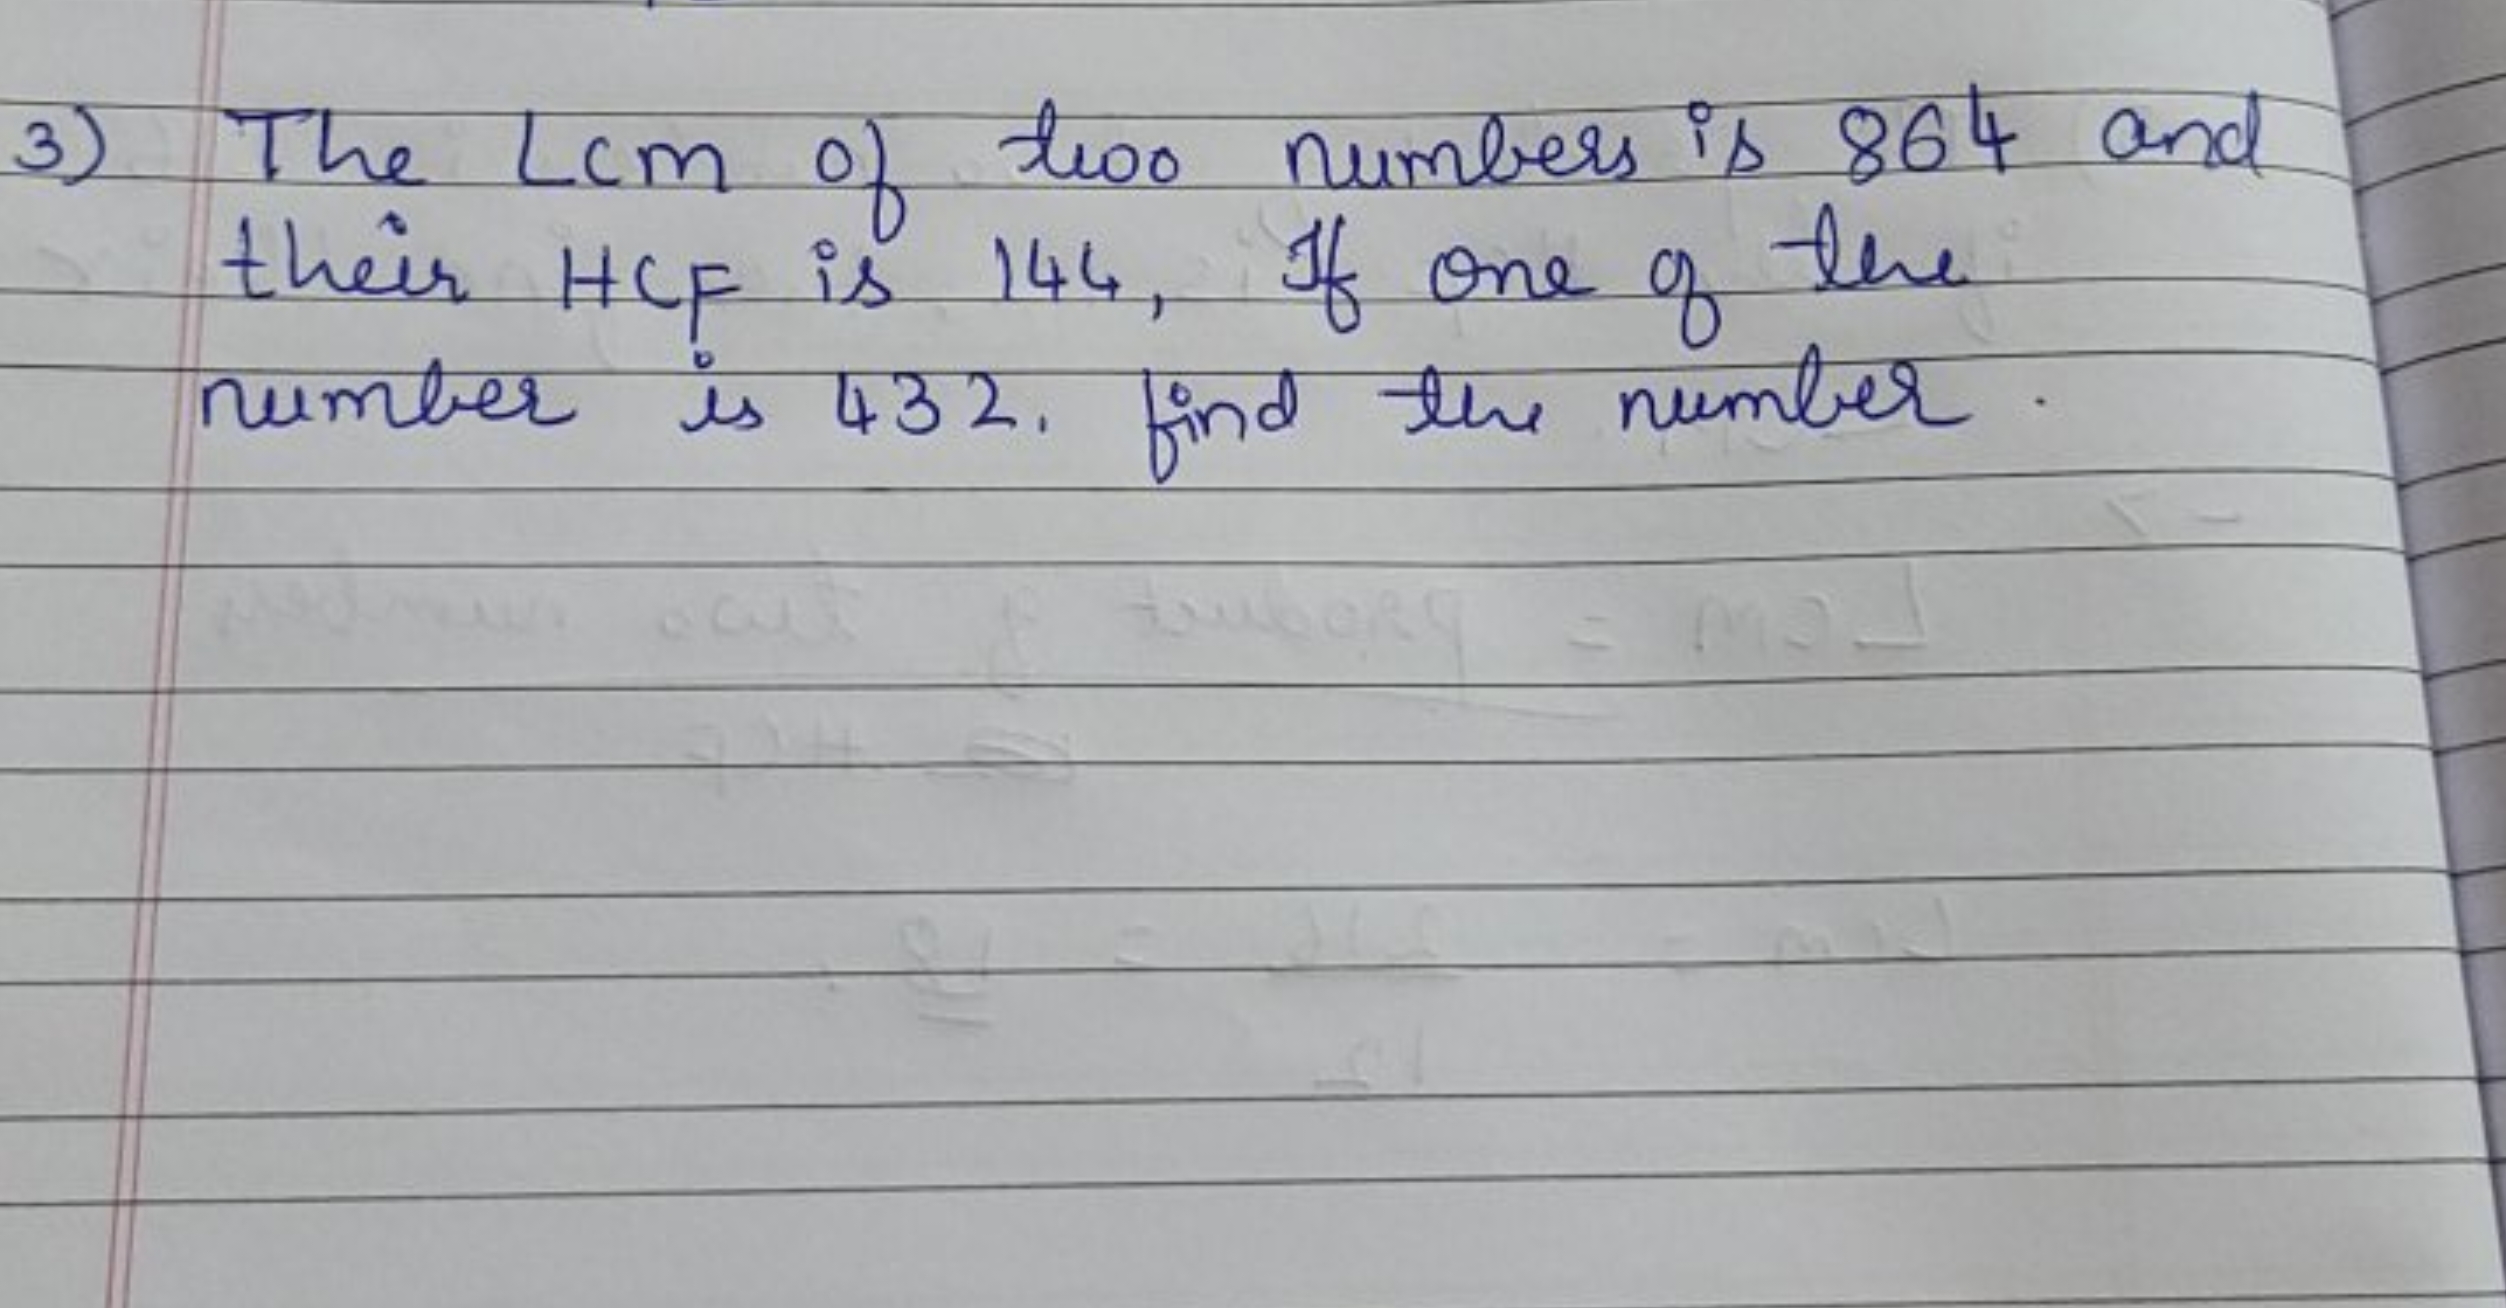 3) The Lcm of two numbers is 864 and
their HCF is 144, If one of the
number is 432. find the number.